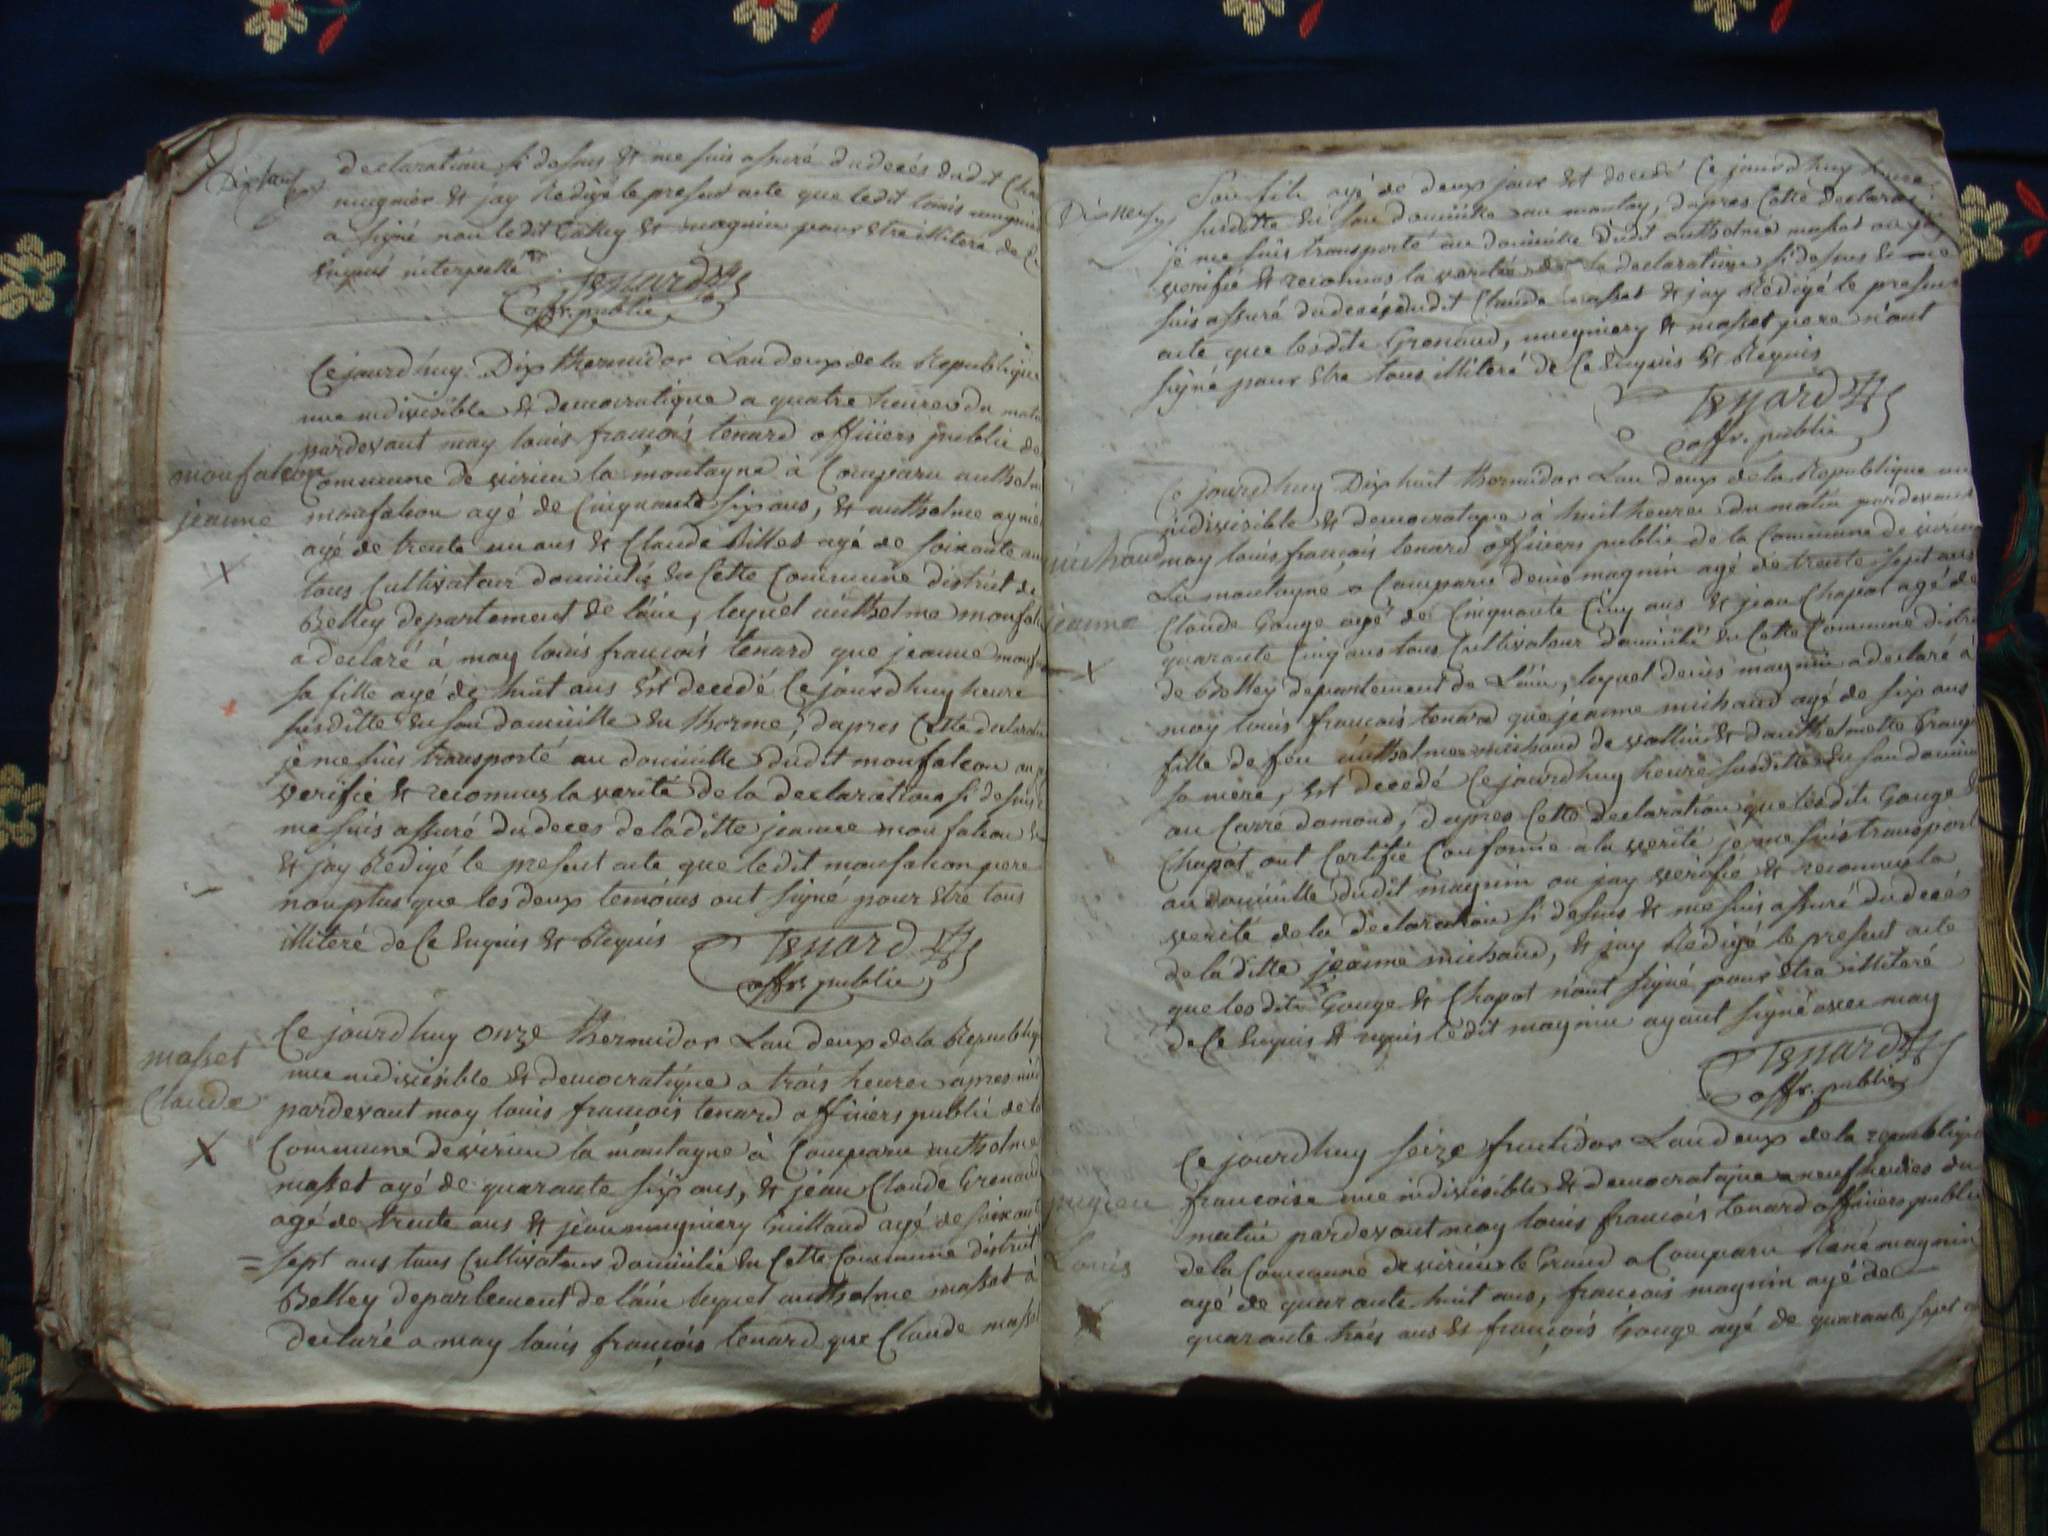 Dixhuit
declaration si desus et me suis assuré du decés dudit
mugnier et jay Redigé le present acte que ledit louis mugnier
a signé non ledit et magnin pour etre illiteré de Ce
Enquis interpellé
Tenard
offr. public
monfalcon
jeanne
Ce jourd'huy Dix thermidor Lan deux de la Republique
une indivisible et democratique a quatre heures du matin
pardevant moy louis françois tenard officiers public de
Commune de virieu la montagne à Comparu anthelme
monfalcon agé de Cinquante six ans, et anthelme aymé
agé de trente un ans et Claude Billet agé de soixante ans
tous Cultivateur domicilié en Cette Commune district de
Belley departement de lain, lequel anthelme monfal
a declaré à moy louis françois tenard que jeanne monf
sa fille agé de huit ans est decedé Ce jourd'huy heure
susditte en son domicille du, dapres Cette declaration
je me suis transporté au domicille dudit monfalcon ou j
verifié et reconnus la verité de la declaration si desus
me suis assuré du deces de la ditte jeanne monfalcon
et jay Redigé le present acte que ledit monfalcon pere
non plus que les deux temoins ont signé pour etre tous
illiteré de Ce Enquis et Requis
Tenard
offr. public
masset
Claude
Ce jourd'huy onze thermidor Lan deux de la Republiq
une indivisible et democratique a trois heures apres mid
pardevant moy louis françois tenard officiers public de la
Commune de virieu la montagne à Comparu anthelme
masset agé de quarante six ans, et jean Claude Grenaud
agé de trente ans et jean mugniery Guillaud agé de soixante
= sept ans tous Cultivateur domicilié en Cette Commune district
Belley departement de lain lequel anthelme masset à
declaré a moy louis françois tenard que Claude masset
Dixneuf
Son fils agé de deux jour est decedé Ce jourd'huy heure
susditte en son domicille au, dapres Cette declaration
je me suis transporté au domicille dudit anthelme masset ou jay
verifié et reconnus la verité de la declaration si desus et me
suis assuré du decés dudit Claude masset et jay Redigé le present
acte que lesdits Grenaud, mugniery et masset pere n'ont
signé pour etre tous illiteré de Ce Enquis et Requis
Tenard
offr. public
michaud
jeanne
Ce jourd'huy Dix huit thermidor Lan deux de la Republique une
indivisible et democratique à huit heures du matin pardevant
moy louis françois tenard officiers public de la Commune de virieu
La montagne a Comparu denis magnin agé de trente sept ans
Claude Gouge agé de Cinquante Cinq ans et jean Chapot agé de
quarante Cinq ans tous Cultivateur domicilié en Cette Commune distri
de Belley departement de Lain, lequel denis magnin a declaré à
moy louis françois tenard que jeanne michaud agé de six ans
fille de feu anthelme michaud de et danthelmette
sa mère, est decedé Ce jourd'huy heure susditte en son domici
au Carre damond, dapres Cette declaration que lesdits Gouge et
Chapot ont Certifié Conforme a la verité je me suis transporté
au domicille dudit magnin ou jay verifié et reconnus la
verité de la declaration si desus et me suis assuré du decés
de la ditte jeanne michaud, et jay Redigé le present acte
que lesdits Gouge et Chapot n'ont signé pour etre illiteré
de Ce Enquis et requis ledit magnin ayant signé avec moy
Tenard
offr. public
Louis
Ce jourd'huy seize fructidor Lan deux de la republique
francoise une indivisible et democratique a neuf heures du
matin pardevant moy louis françois tenard officiers public
de la Commune de virieu le Grand a Comparu René magnin
agé de quarante huit ans, françois magnin agé de
quarante trois ans et françois Gouge agé de quarante sept